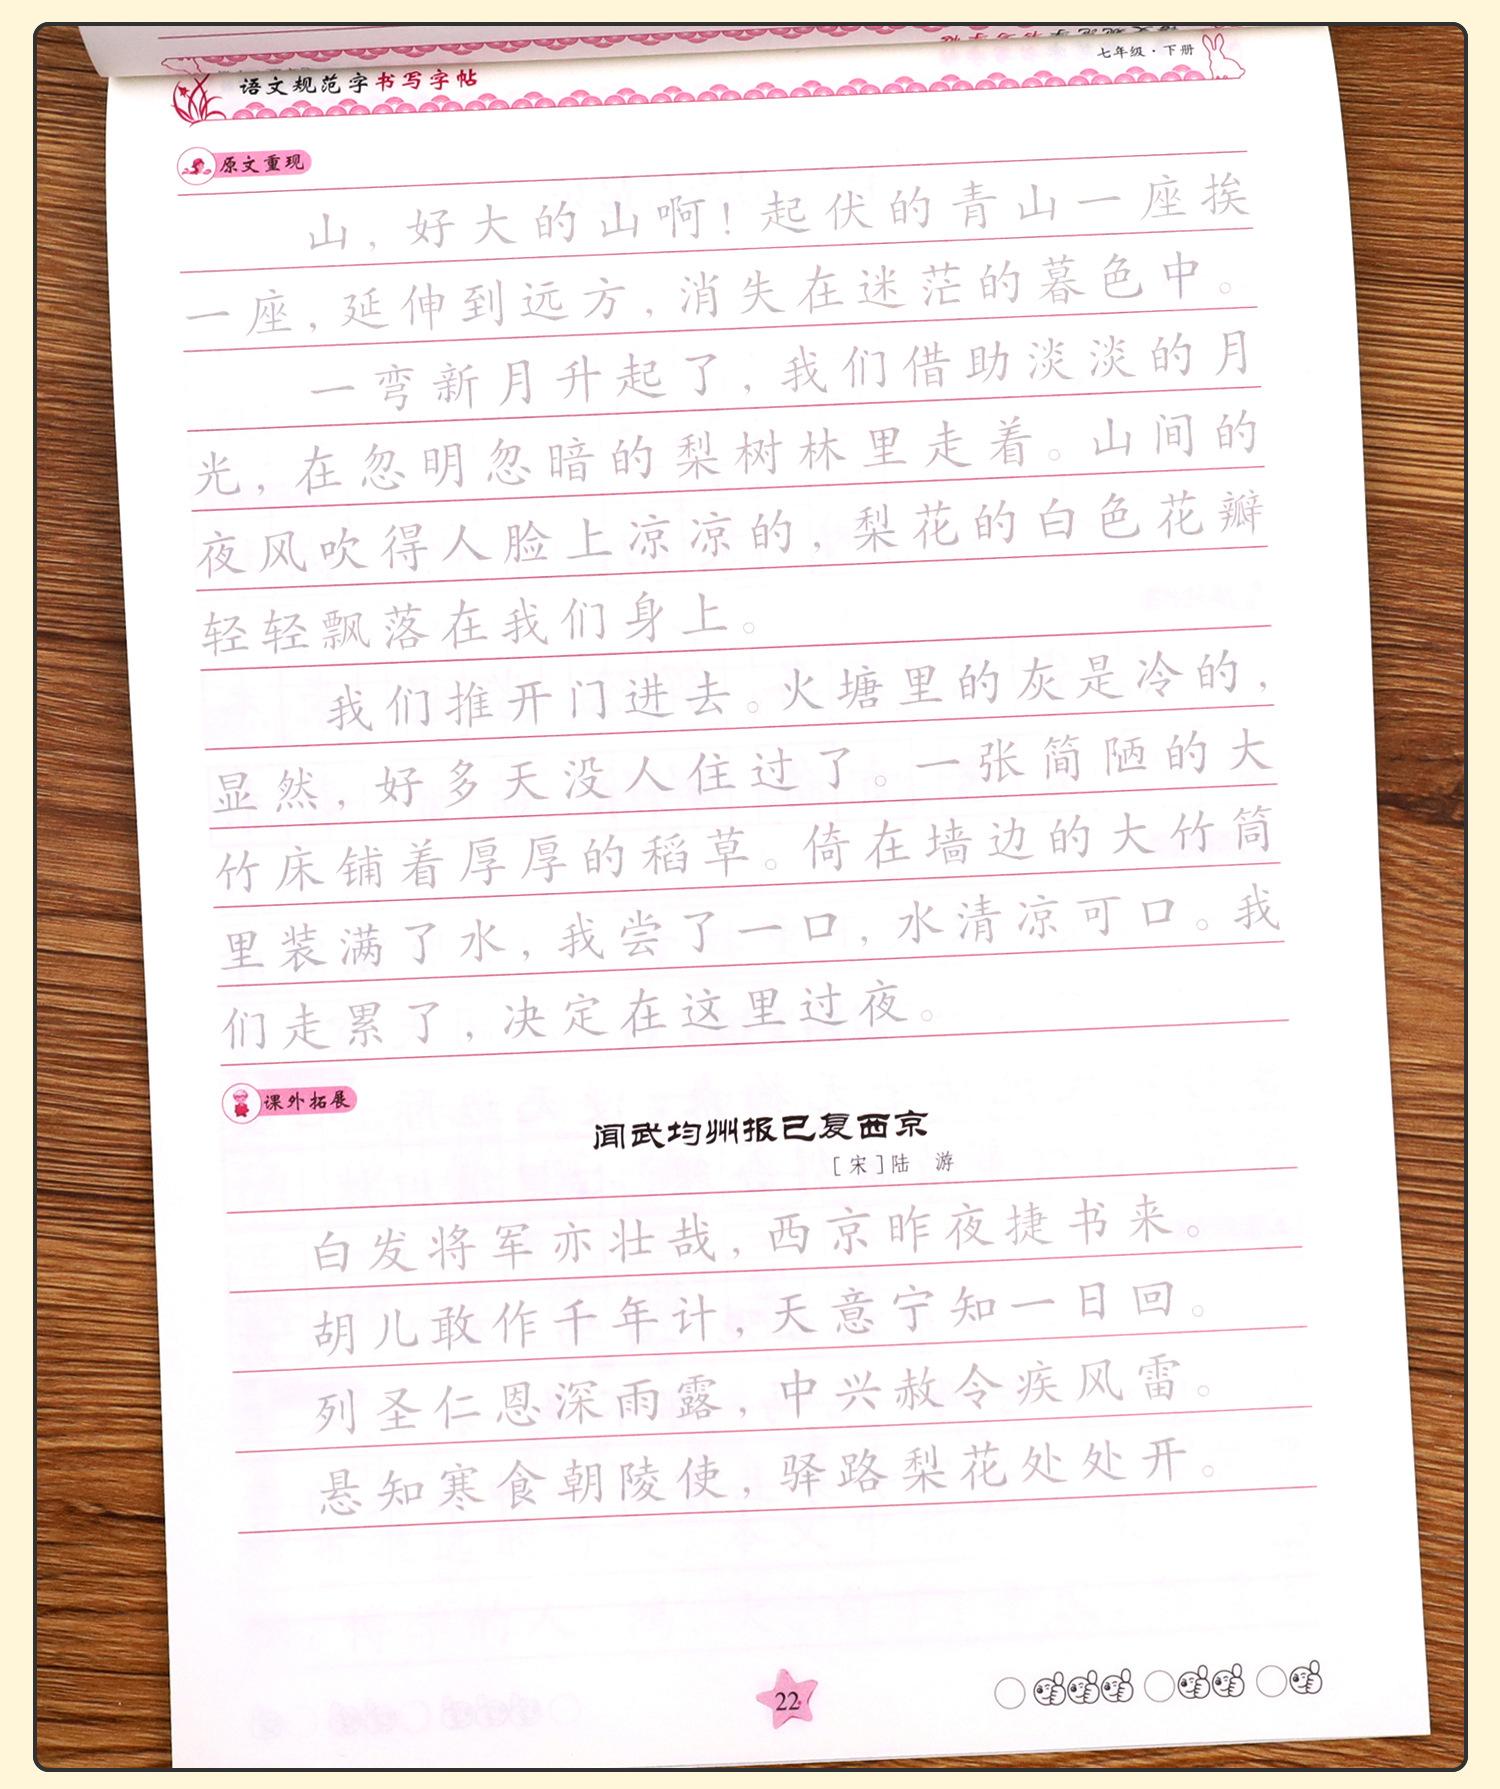 语文规范字书写字帖
七年级·下册
原文重现
山，好大的山啊！起伏的青山一座挨
一座，延伸到远方，消失在迷茫的暮色中。
一弯新月升起了，我们借助淡淡的月
光，在忽明忽暗的梨树林里走着。山间的
夜风吹得人脸上凉凉的，梨花的白色花瓣
轻轻飘落在我们身上。
我们推开门进去。火塘里的灰是冷的，
显然，好多天没人住过了。一张简陋的大
竹床铺着厚厚的稻草。倚在墙边的大竹筒
里装满了水，我尝了一口，水清凉可口。我
们走累了，决定在这里过夜。
课外拓展
闻武均州报已复西京
［宋］陆 游
白发将军亦壮哉，西京昨夜捷书来。
胡儿敢作千年计，天意宁知一日回。
列圣仁恩深雨露，中兴赦令疾风雷。
悬知寒食朝陵使，驿路梨花处处开。
22